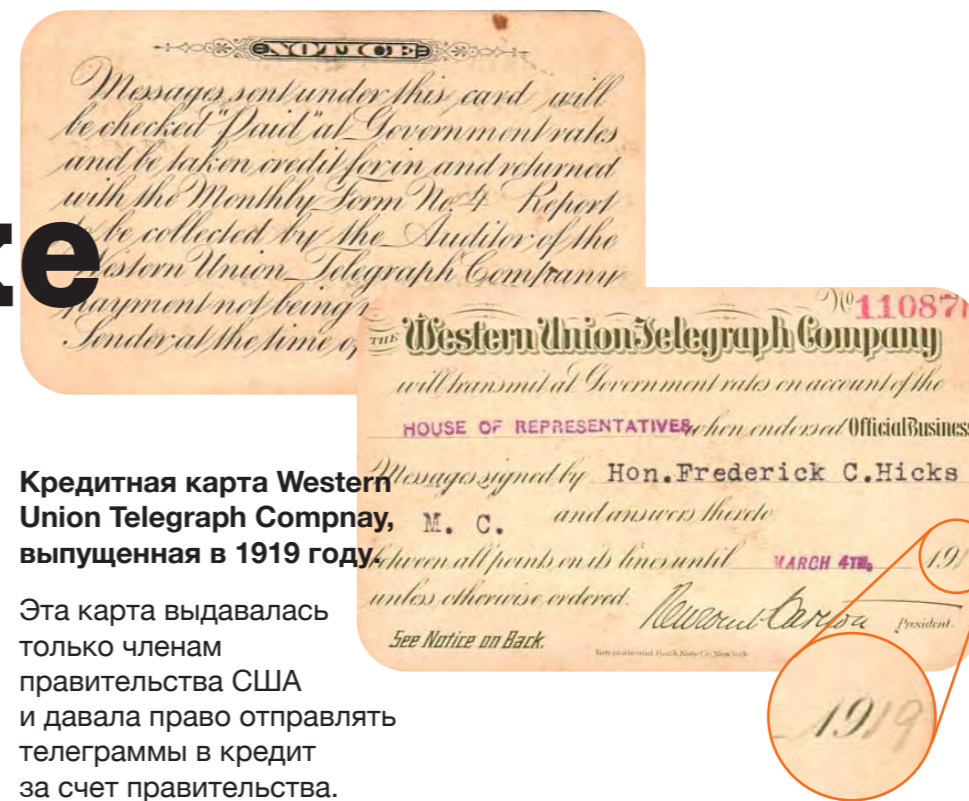 NOTICE
Messages sent under this card will
be checked "Paid" at Government rates
and be taken credit for in and returned
with the Monthly Form No. 4 Report
be collected by the Auditor of the
Western Union Telegraph Company
payment not being
Sender at the time of
ке
No 11087
THE Western Union Telegraph Company
will transmit at Government rates on account of the
HOUSE OF REPRESENTATIVES when endorsed Official Business
Messages signed by Hon. Frederick C. Hicks
M. C. and answers thereto
between all points on its lines until MARCH 4TH, 191
unless otherwise ordered.
President.
See Notice on Back.
1919
Кредитная карта Western
Union Telegraph Compnay,
выпущенная в 1919 году.
Эта карта выдавалась
только членам
правительства США
и давала право отправлять
телеграммы в кредит
за счет правительства.